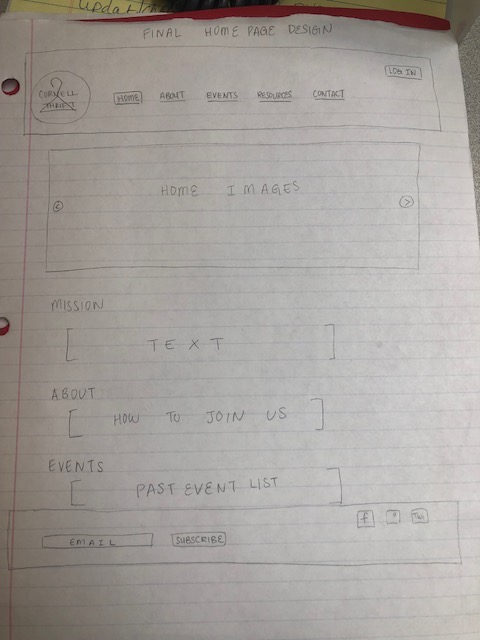 Upda
FINAL HOME PAGE DESIGN
LOG IN
CORNELL
THRIFT
HOME ABOUT EVENTS RESOURCES CONTACT
HOME IMAGES
< >
MISSION
[ TEXT ]
ABOUT
[ HOW TO JOIN US ]
EVENTS
[ PAST EVENT LIST ]
f
EMAIL SUBSCRIBE